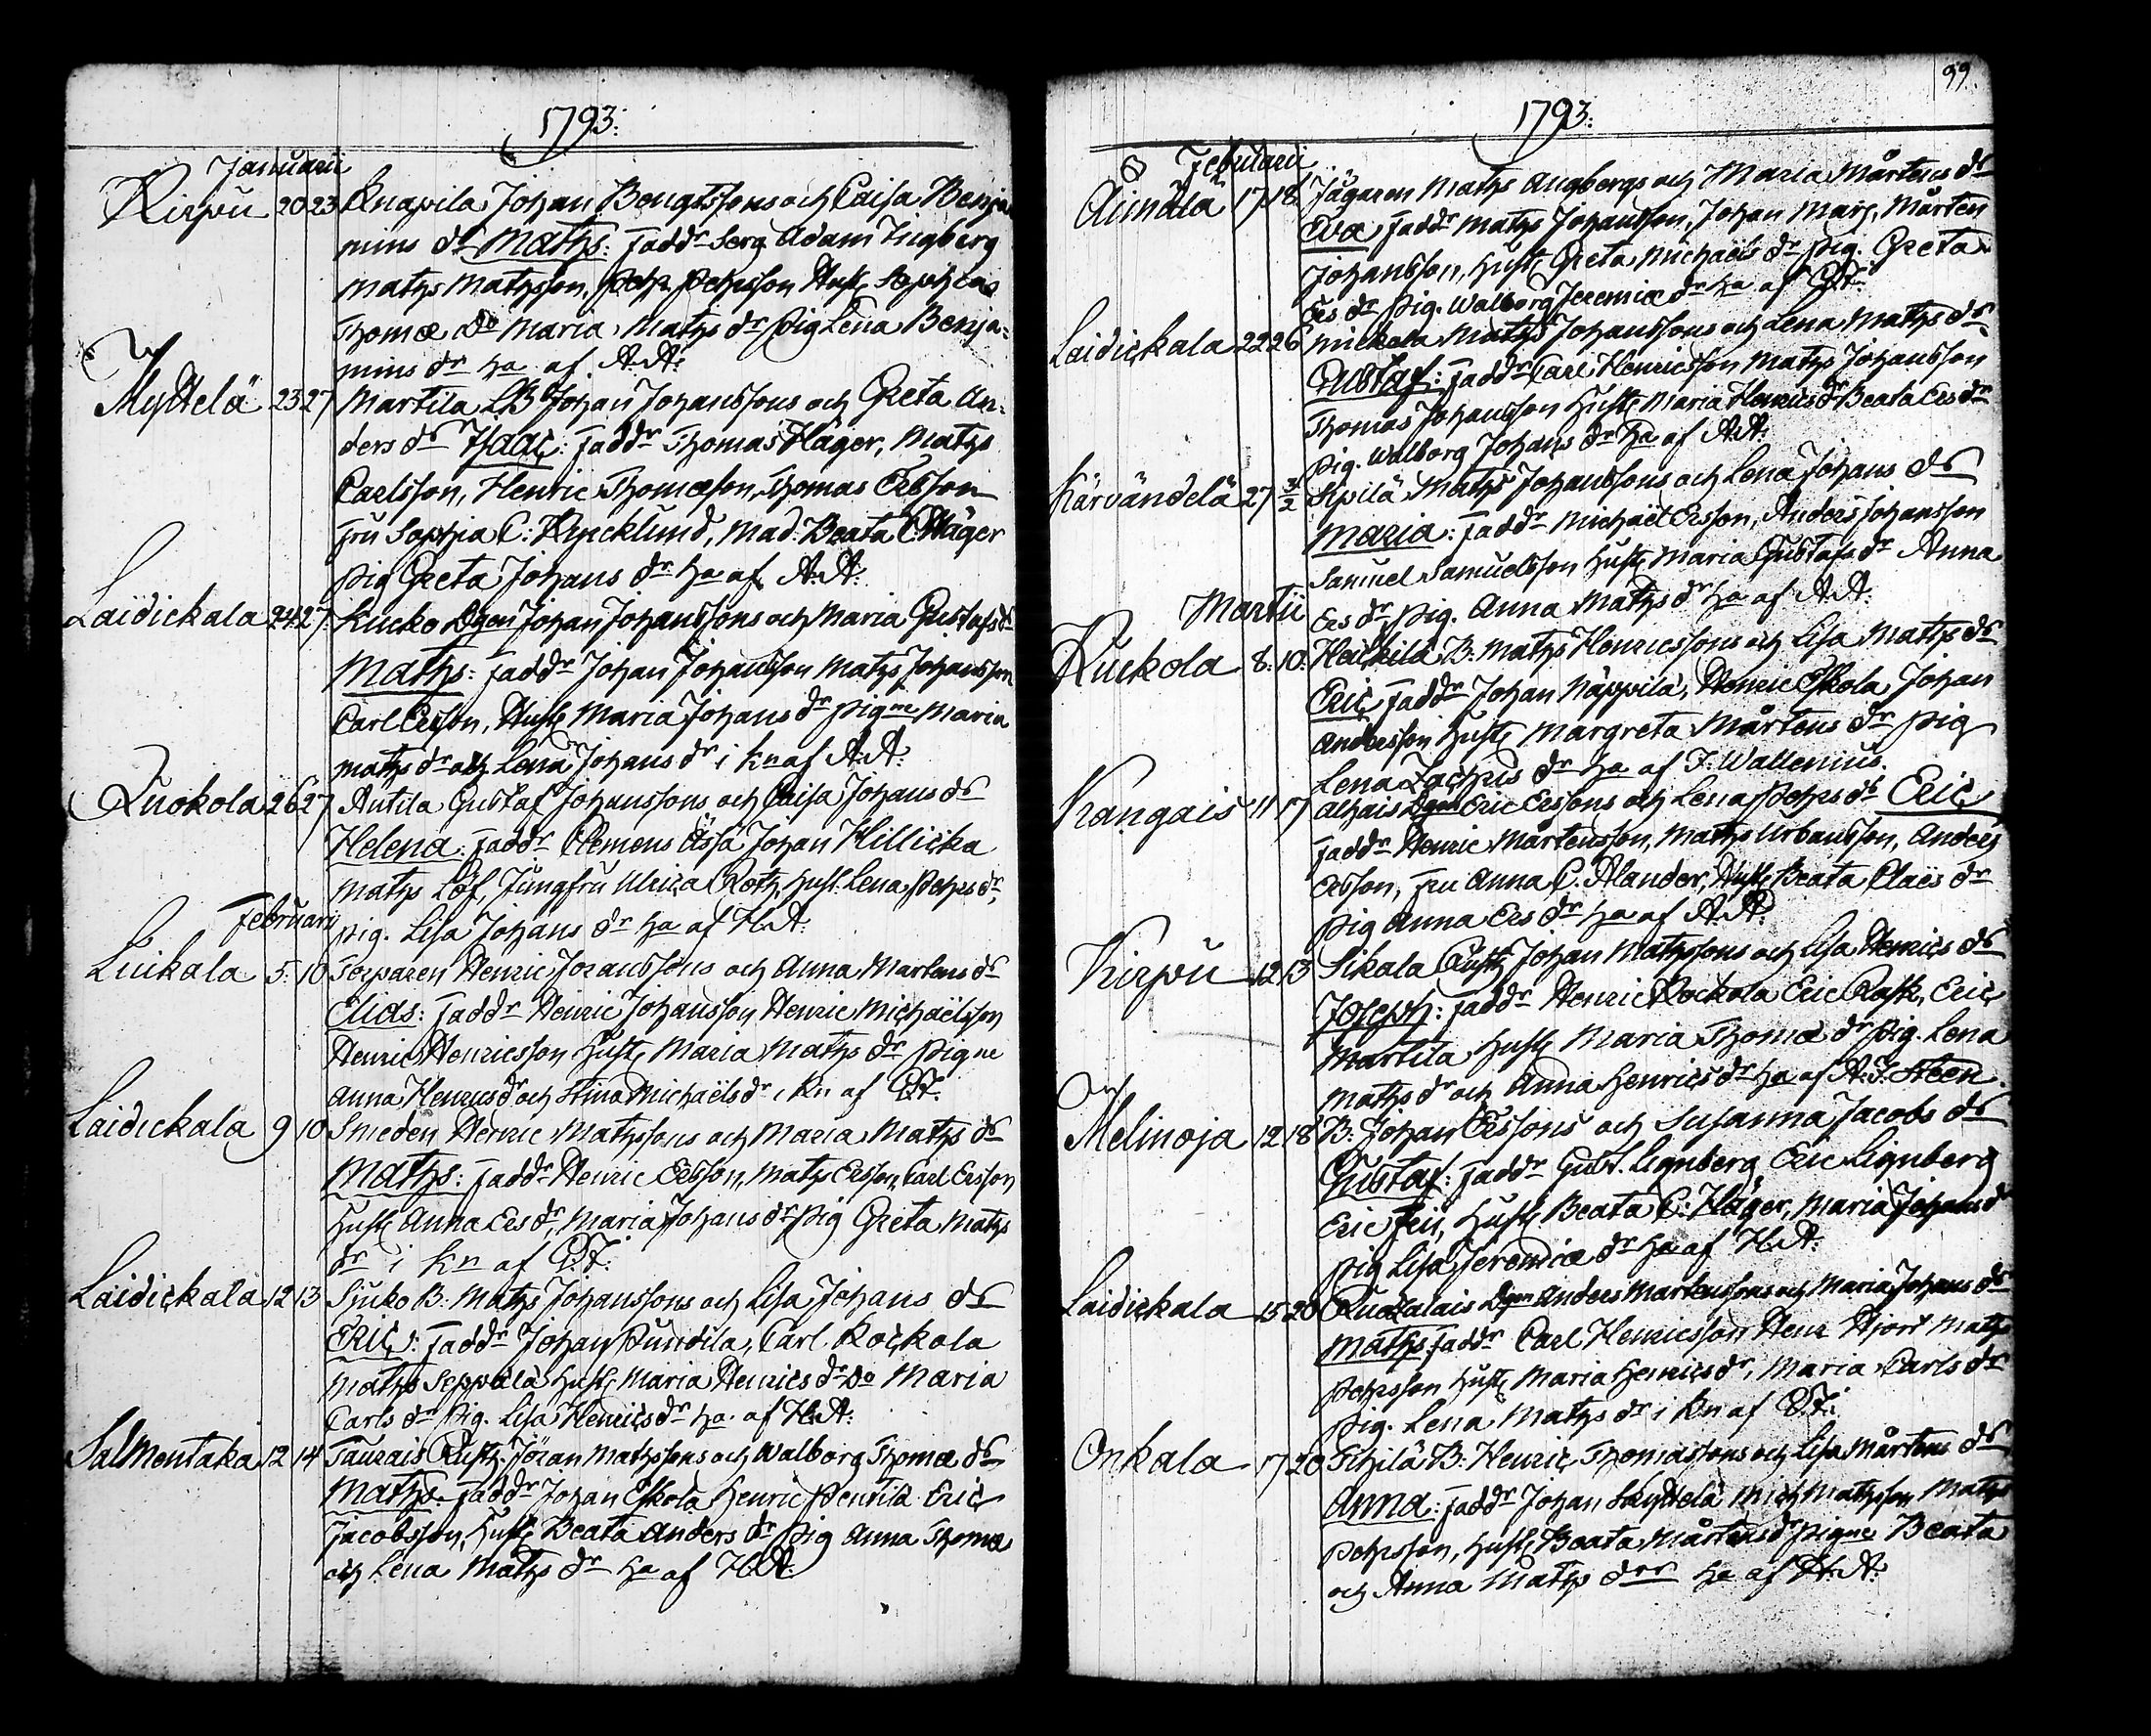 1793:
Januarii
Kirpu 20 23 Knapila Johan Bengtssons och Caisa Benja
mins dr Maths: Faddr Serg Adam Lugberg
Maths Mathsson, Pehr Pehrsson Hust Sophia
Thomæ Do Maria Maths dr Pig Lena Benja-
mins dr ha af A:A:
Myttelä 23 27 Martila LB Johan Johanssons och Greta An-
ders dr Isaac: Faddr Thomas Häger, Maths
Carlsson, Henric Thomæson, Thomas Ersson
Fru Sophia C: Rycklund, Mad: Beata C Häger
Pig Greta Johans dr ha af A:A:
Laidickala 24 27 Kucko Dgen Johan Johanssons och Maria Gustafs dr
Maths: Faddr Johan Johansson Maths Johansson
Carl Ersson, Hust Maria Johans dr Pigne Maria
Maths dr och Lena Johans dr i Kn af A:A:
Kuokola 26 27 Antila Gustaf Johanssons och Caisa Johans dr
Helena: Faddr Clemens Ässä Johan Hillicka
Maths Löf, Jungfru Ulrica Roth, Hust: Lena Pehrs dr,
Februarii Pig. Lisa Johans dr ha af H:A:
Luikala 5 10 Torparen Henric Joranssons och Anna Martens dr
Elias: Faddr Henric Johansson Henric Michaëlsson
Henric Henricsson Hust Maria Maths dr Pigne
Anna Henrics dr och Stina Michaëls dr i Kn af
Laidickala 9 10 Smeden Henric Mathssons och Maria Maths dr
Maths: Faddr Henric Ersson, Maths Ersson, Carl Ersson
Hust Anna Ers dr, Maria Johans dr Pig Greta Maths
dr i Kn af
Laidickala 12 13 Sjuko B: Maths Johanssons och Lisa Johans dr
Eric: Faddr Johan Pundila, Carl Rockola
Maths Seppälä Hust Maria Henrics dr Do Maria
Carls dr Pig. Lisa Henrics dr ha af H:A:
Salmentaka 12 14 Taurais Rusth: Jöran Mathssons och Walborg Thomæ dr
Maths: Faddr Johan Eskola Henric Penttilä Eric
Jacobsson, Hust Beata Anders dr Pig Anna Thomæ
och Lena Maths dr ha af H:A:
99.
1793:
Februarii
Aimälä 17 18 Jägaren Maths Augbergs och Maria Mårtens dr
Eva Faddr Maths Johansson, Johan Mårt, Mårten
Johansson, Hust Greta Michaëls dr Pig. Greta
Ers dr Pig. Walborg Jeremiæ dr ha af
Laidickala 22 26 Mickola Maths Johanssons och Lena Maths dr
Gustaf: Faddr Carl Henricsson Maths Johansson
Thomas Johansson Hust Maria Henrics dr Beata Ers dr
Pig. Walborg Johans dr ha af A:A:
Kärvändelä 27 3/2 Sipilä Maths Johanssons och Lena Johans dr
Maria: Faddr Michaël Ersson, Anders Johansson
Samuel Samuelsson Hust Maria Gustafs dr Anna
Martii Ers dr, Pig. Anna Maths dr ha af A:A:
Kuckola 8 10 Heickilä B: Maths Henricssons och Lisa Maths dr
Eric, Faddr Johan Näppilä, Henric Eskola, Johan
Andersson Hust Margreta Mårtens dr Pig
Lena Zachris dr ha af J: Wallenius.
Kangais 11 17 Alhais Dgen Eric Erssons och Lena Pehrs dr Eric
Faddr Henric Mårtensson, Maths Urbansson, Anders
Ersson, Fru Anna C: Alander, Hust Beata Claës dr
Pig Anna Ers dr ha af A:A:
Kirpu 12 13 Sikala Rusth Johan Mathssons och Lisa Henrics dr
Joseph: Faddr Henric Rockola Eric Rask, Eric
Martila Hust Maria Thomæ dr Pig. Lena
Maths dr och Anna Henrics dr ha af A:J: Steen.
Melinoja 12 18 B: Johan Erssons och Susanna Jacobs dr
Gustaf: Faddr Gust. Lignberg Eric Lignberg
Eric Frii, Hust Beata C: Häger, Maria Johans dr
Pig Lisa Jeremiæ dr ha af H:A:
Laidickala 15 20 Dgen Anders Mårtenssons och Maria Johans dr
Maths: Faddr Carl Henricsson Henr Hjort Maths
Pehrsson Hust Maria Henrics dr, Maria Carls dr
Pig. Lena Maths dr i Kn af
Onkala 17 20 Pihilä B: Henric Thomassons och Lisa Mårtens dr
Anna: Faddr Johan Skyttelä Mich Mathsson Maths
Pehrsson, Hust Beata Mårtens dr Pigne Beata
och Anna Maths drr ha af H:A: